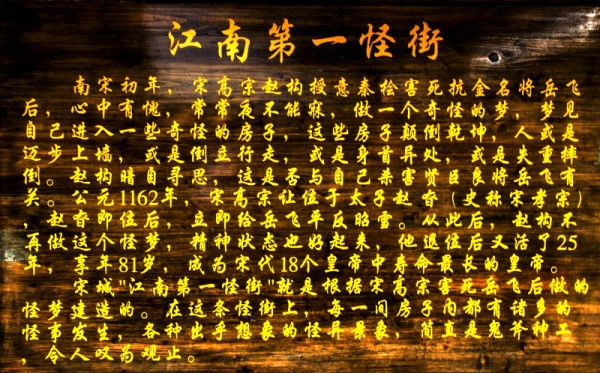 江南第一怪街
南宋初年，宋高宗赵构授意秦桧害死抗金名将岳飞
后，心中有愧，常常夜不能寐，做一个奇怪的梦，梦见
自己进入一些奇怪的房子，这些房子颠倒乾坤，人或是
迈步上墙，或是倒立行走，或是身首异处，或是失重摔
倒。赵构暗自寻思，这是否与自己杀害贤臣良将岳飞有
关。公元1162年，宋高宗让位于太子赵昚（史称宋孝宗）
，赵昚即位后，立即给岳飞平反昭雪。从此后，赵构不
再做这个怪梦，精神状态也好起来，他退位后又活了25
年，享年81岁，成为宋代18个皇帝中寿命最长的皇帝。
宋城"江南第一怪街"就是根据宋高宗害死岳飞后做的
怪梦建造的。在这条怪街上，每一间房子内都有诸多的
怪事发生，各种出乎想象的怪异景象，简直是鬼斧神工
，令人叹为观止。